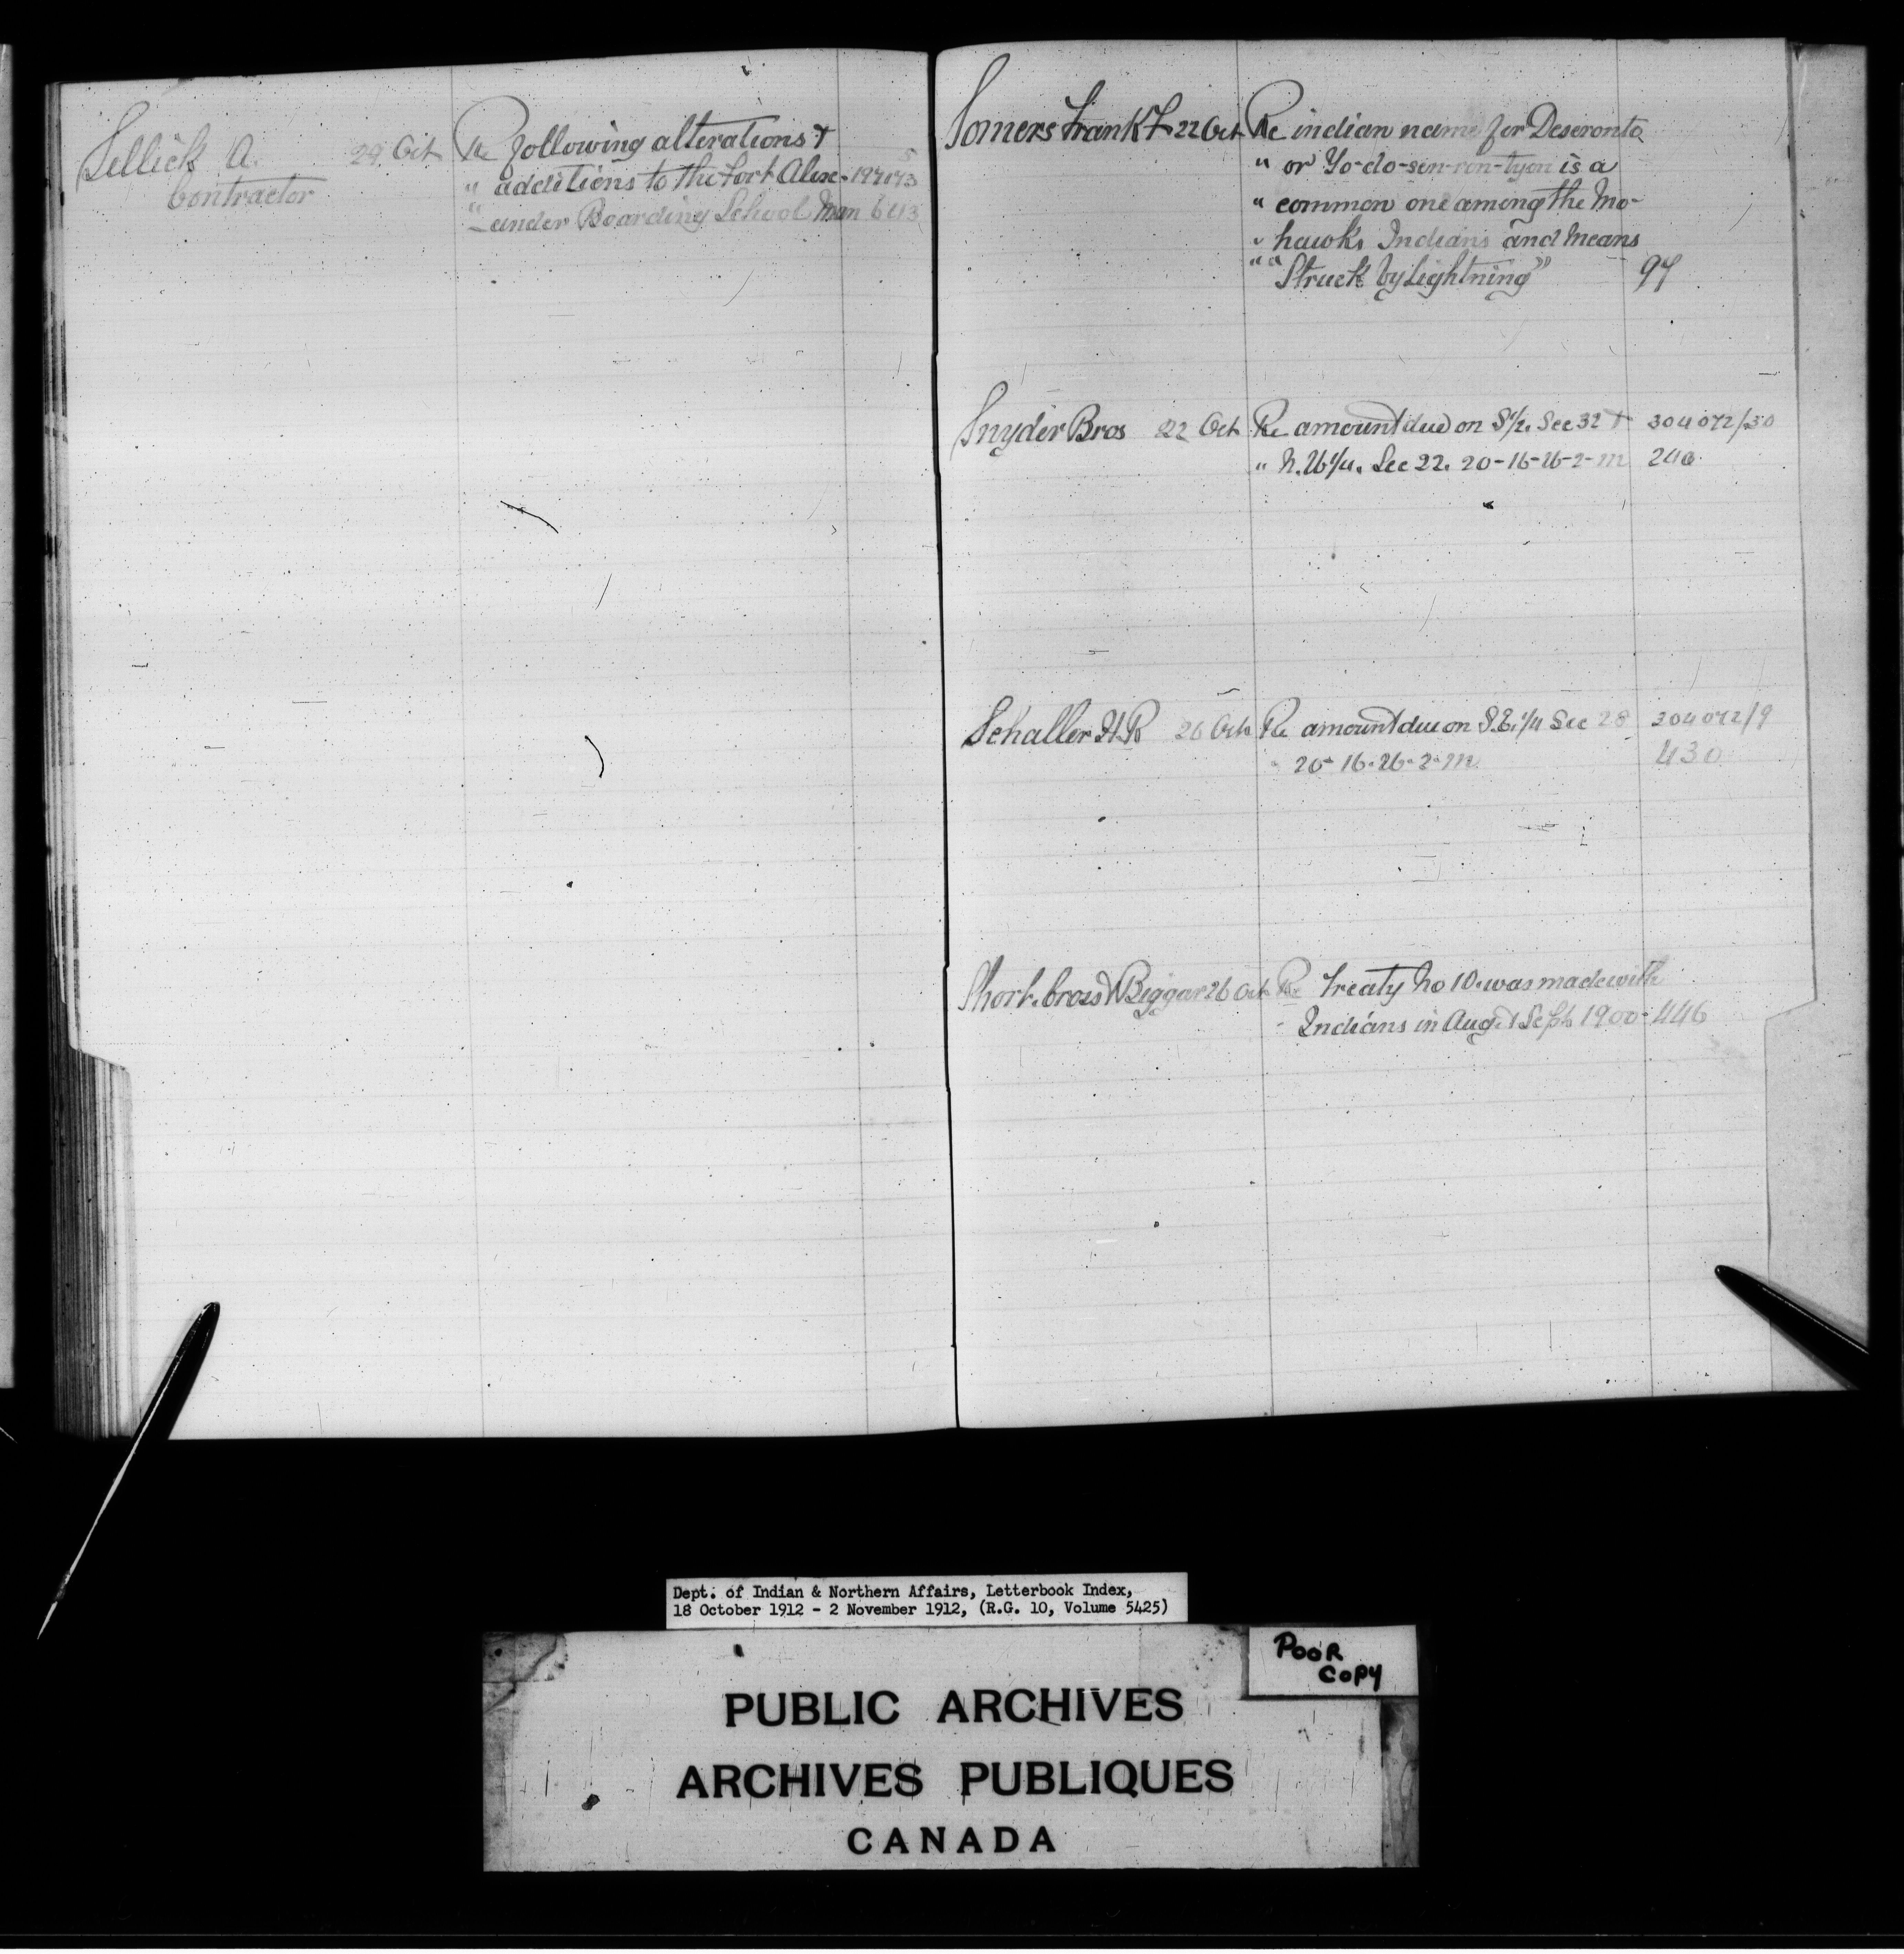 Sellick A. 29 Oct Re following alterations &
Contractor " additions to the Fort Alex-
" ander Boarding School Man 643
Somers Frank F 22 Oct Re indian name for Deseronto
" or Yo-do-sen-ron-tyon is a
" common one among the Mo-
" hawks Indians and Means
" " Struck by Lightning" 97
Snyder Bros 22 Oct Re amount due on S½. Sec 32 & 304072/30
" N.W¼. Sec 22. 20-16-26-2-M 240
Schaller H.R 26 Oct Re amount due on S.E.¼ Sec 28 304072/9
" 20-16-26-2-M 430
Short. Cross & Biggar 26 Oct Re Treaty No 10. was made with
Indians in Aug. & Sept. 1900- 446
Dept. of Indian & Northern Affairs, Letterbook Index,
18 October 1912 - 2 November 1912, (R.G. 10, Volume 5425)
POOR
COPY
PUBLIC ARCHIVES
ARCHIVES PUBLIQUES
CANADA